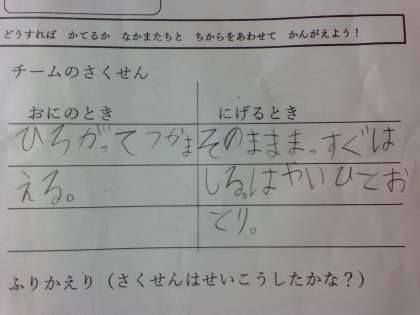 どうすれば かてるか なかまたちと ちからをあわせて かんがえよう！
チームのさくせん
おにのとき
ひろがってつかま
える。
にげるとき
そのまままっすぐは
しる。はやいひとお
とり。
ふりかえり（さくせんはせいこうしたかな？）